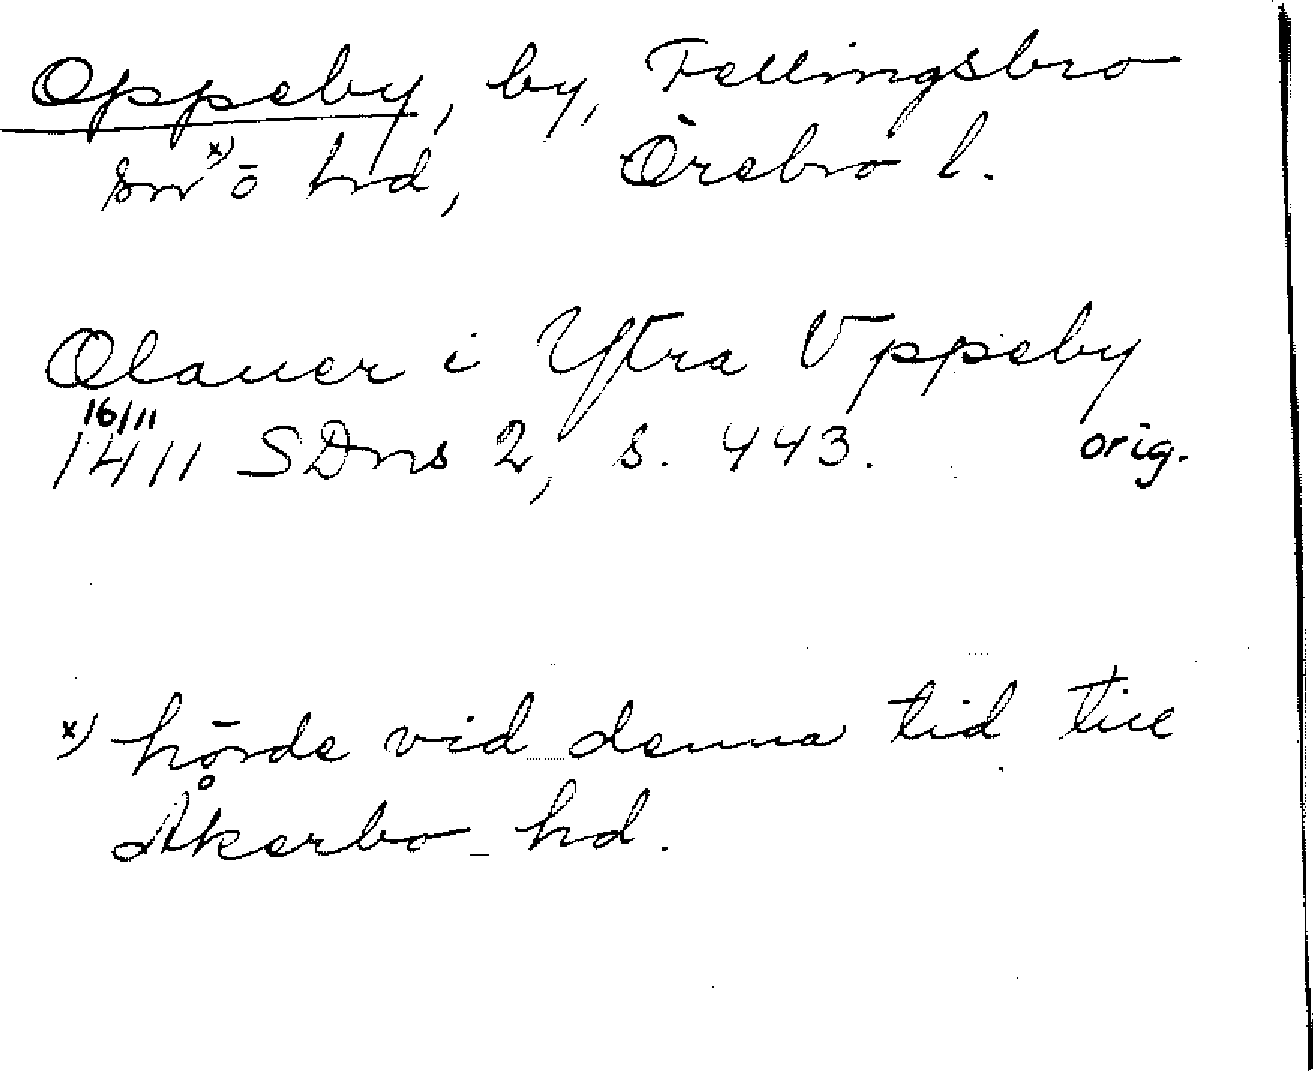 Oppeby, by, Fellingsbro
sn x) o hd, Örebro l.
Olauer i Ytra Uppeby
16/11
1411 SDns 2, s. 443. orig.
x) hörde vid denna tid till
Åkerbo hd.